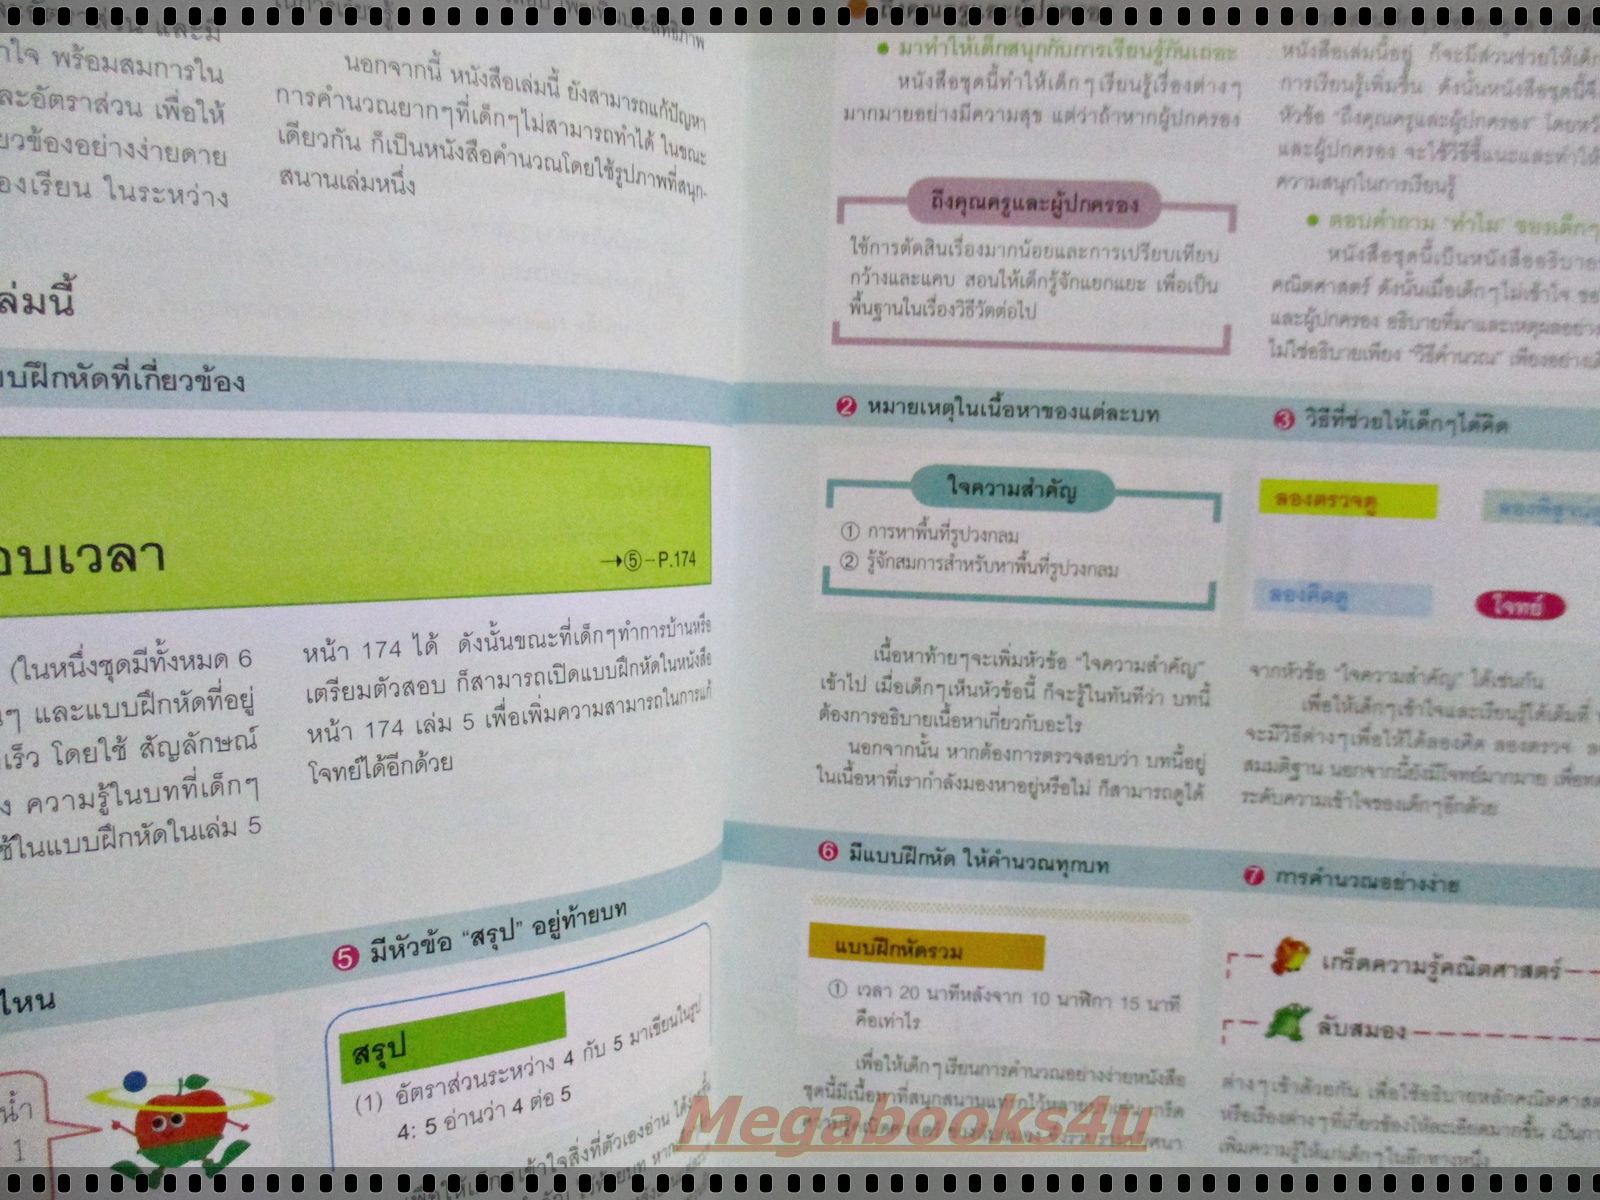 าใจ พร้อมสมการใน
ละอัตราส่วน เพื่อให้
ยวข้องอย่างง่ายดาย
องเรียน ในระหว่าง
นอกจากนี้ หนังสือเล่มนี้ ยังสามารถแก้ปัญหา
การคำนวณยากๆที่เด็กๆไม่สามารถทำได้ ในขณะ
เดียวกัน ก็เป็นหนังสือคำนวณโดยใช้รูปภาพที่สนุก-
สนานเล่มหนึ่ง
ล่มนี้
บบฝึกหัดที่เกี่ยวข้อง
อบเวลา
→⑤–P.174
(ในหนึ่งชุดมีทั้งหมด 6
นๆ และแบบฝึกหัดที่อยู่
เร็ว โดยใช้ สัญลักษณ์
ง ความรู้ในบทที่เด็กๆ
ช้ในแบบฝึกหัดในเล่ม 5
หน้า 174 ได้ ดังนั้นขณะที่เด็กๆทำการบ้านหรือ
เตรียมตัวสอบ ก็สามารถเปิดแบบฝึกหัดในหนังสือ
หน้า 174 เล่ม 5 เพื่อเพิ่มความสามารถในการแก้
โจทย์ได้อีกด้วย
ไหน
น้ำ
1
5 มีหัวข้อ “สรุป” อยู่ท้ายบท
สรุป
(1) อัตราส่วนระหว่าง 4 กับ 5 มาเขียนในรูป
4: 5 อ่านว่า 4 ต่อ 5
ถึงคุณครูและผู้ปกครอง
● มาทำให้เด็กสนุกกับการเรียนรู้กันเถอะ
หนังสือชุดนี้ทำให้เด็กๆเรียนรู้เรื่องต่างๆ
มากมายอย่างมีความสุข แต่ว่าถ้าหากผู้ปกครอง
ถึงคุณครูและผู้ปกครอง
ใช้การตัดสินเรื่องมากน้อยและการเปรียบเทียบ
กว้างและแคบ สอนให้เด็กรู้จักแยกแยะ เพื่อเป็น
พื้นฐานในเรื่องวิธีวัดต่อไป
หนังสือเล่มนี้อยู่ ก็จะมีส่วนช่วยให้เด็ก
การเรียนรู้เพิ่มขึ้น ดังนั้นหนังสือชุดนี้จึ
หัวข้อ “ถึงคุณครูและผู้ปกครอง” โดยหวั
และผู้ปกครอง จะใช้วิธีชี้แนะและทำให้
ความสนุกในการเรียนรู้
● ตอบคำถาม “ทำไม” ของเด็กๆ
หนังสือชุดนี้เป็นหนังสืออธิบาย
คณิตศาสตร์ ดังนั้นเมื่อเด็กๆไม่เข้าใจ
และผู้ปกครอง อธิบายที่มาและเหตุผลอย่าง
ไม่ใช่อธิบายเพียง “วิธีคำนวณ” เพียงอย่างเดี
2 หมายเหตุในเนื้อหาของแต่ละบท
ใจความสำคัญ
① การหาพื้นที่รูปวงกลม
② รู้จักสมการสำหรับหาพื้นที่รูปวงกลม
เนื้อหาท้ายๆจะเพิ่มหัวข้อ “ใจความสำคัญ”
เข้าไป เมื่อเด็กๆเห็นหัวข้อนี้ ก็จะรู้ในทันทีว่า บทนี้
ต้องการอธิบายเนื้อหาเกี่ยวกับอะไร
นอกจากนั้น หากต้องการตรวจสอบว่า บทนี้อยู่
ในเนื้อหาที่เรากำลังมองหาอยู่หรือไม่ ก็สามารถดูได้
3 วิธีที่ช่วยให้เด็กๆได้คิด
ลองตรวจดู
ลองคิดดู
โจทย์
จากหัวข้อ “ใจความสำคัญ” ได้เช่นกัน
เพื่อให้เด็กๆเข้าใจและเรียนรู้ได้เต็มที่
จะมีวิธีต่างๆเพื่อให้ได้ลองคิด ลองตรวจ
สมมติฐาน นอกจากนี้ยังมีโจทย์มากมาย
ระดับความเข้าใจของเด็กๆอีกด้วย
6 มีแบบฝึกหัด ให้คำนวณทุกบท
แบบฝึกหัดรวม
① เวลา 20 นาทีหลังจาก 10 นาฬิกา 15 นาที
คือเท่าไร
เพื่อให้เด็กๆเรียนการคำนวณอย่างง่ายหนังสือ
7 การคำนวณอย่างง่าย
เกร็ดความรู้คณิตศาสตร์
ลับสมอง
ต่างๆเข้าด้วยกัน เพื่อใช้อธิบายหลักคณิตศาสต
หรือเรื่องต่างๆที่เกี่ยวข้องให้ละเอียดมากขึ้น เป็นกา
เพิ่มความรู้ให้แก่เด็กๆในอีกทางหนึ่ง
Megabooks4u